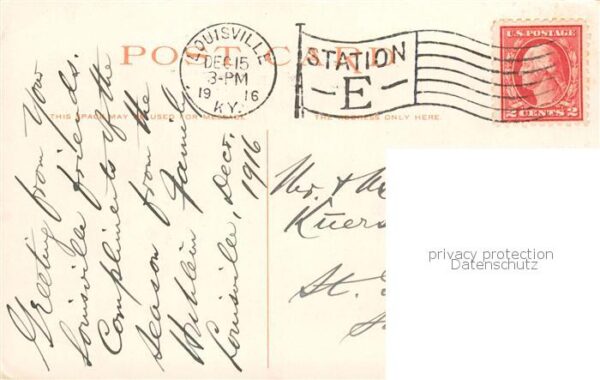 POST CARD
LOUISVILLE
DEC 15
3-PM
1916
KY.
STATION
E
U.S. POSTAGE
2 CENTS 2
THIS SPACE MAY BE USED FOR MESSAGE.
THE ADDRESS ONLY HERE.
Greeting from Your
Louisville friends.
Compliments of the
Season from the
Family.
Louisville, Decr, 1916
Mr. &
St.
privacy protection
Datenschutz